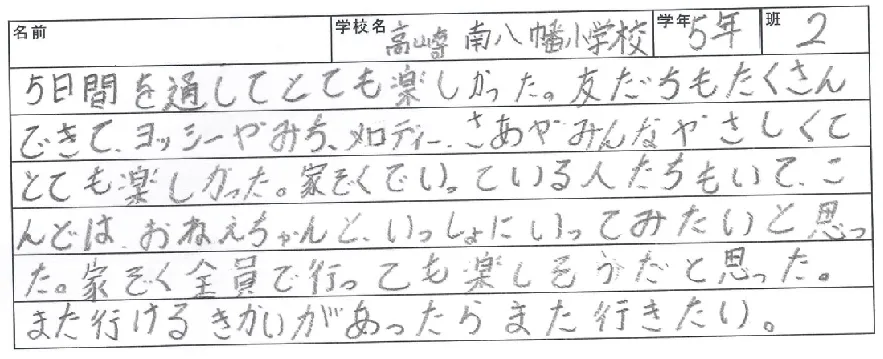 名前 学校名 高崎南八幡小学校 学年 5年 班 2
5日間を通してとても楽しかった。友だちもたくさん
できて、ヨッシーやみち、メロディー、さあやみんなやさしくて
とても楽しかった。家ぞくでいっている人たちもいて、こ
んどは、おねえちゃんと、いっしょにいってみたいと思っ
た。家ぞく全員で行っても楽しそうだと思った。
また行けるきかいがあったらまた行きたい。